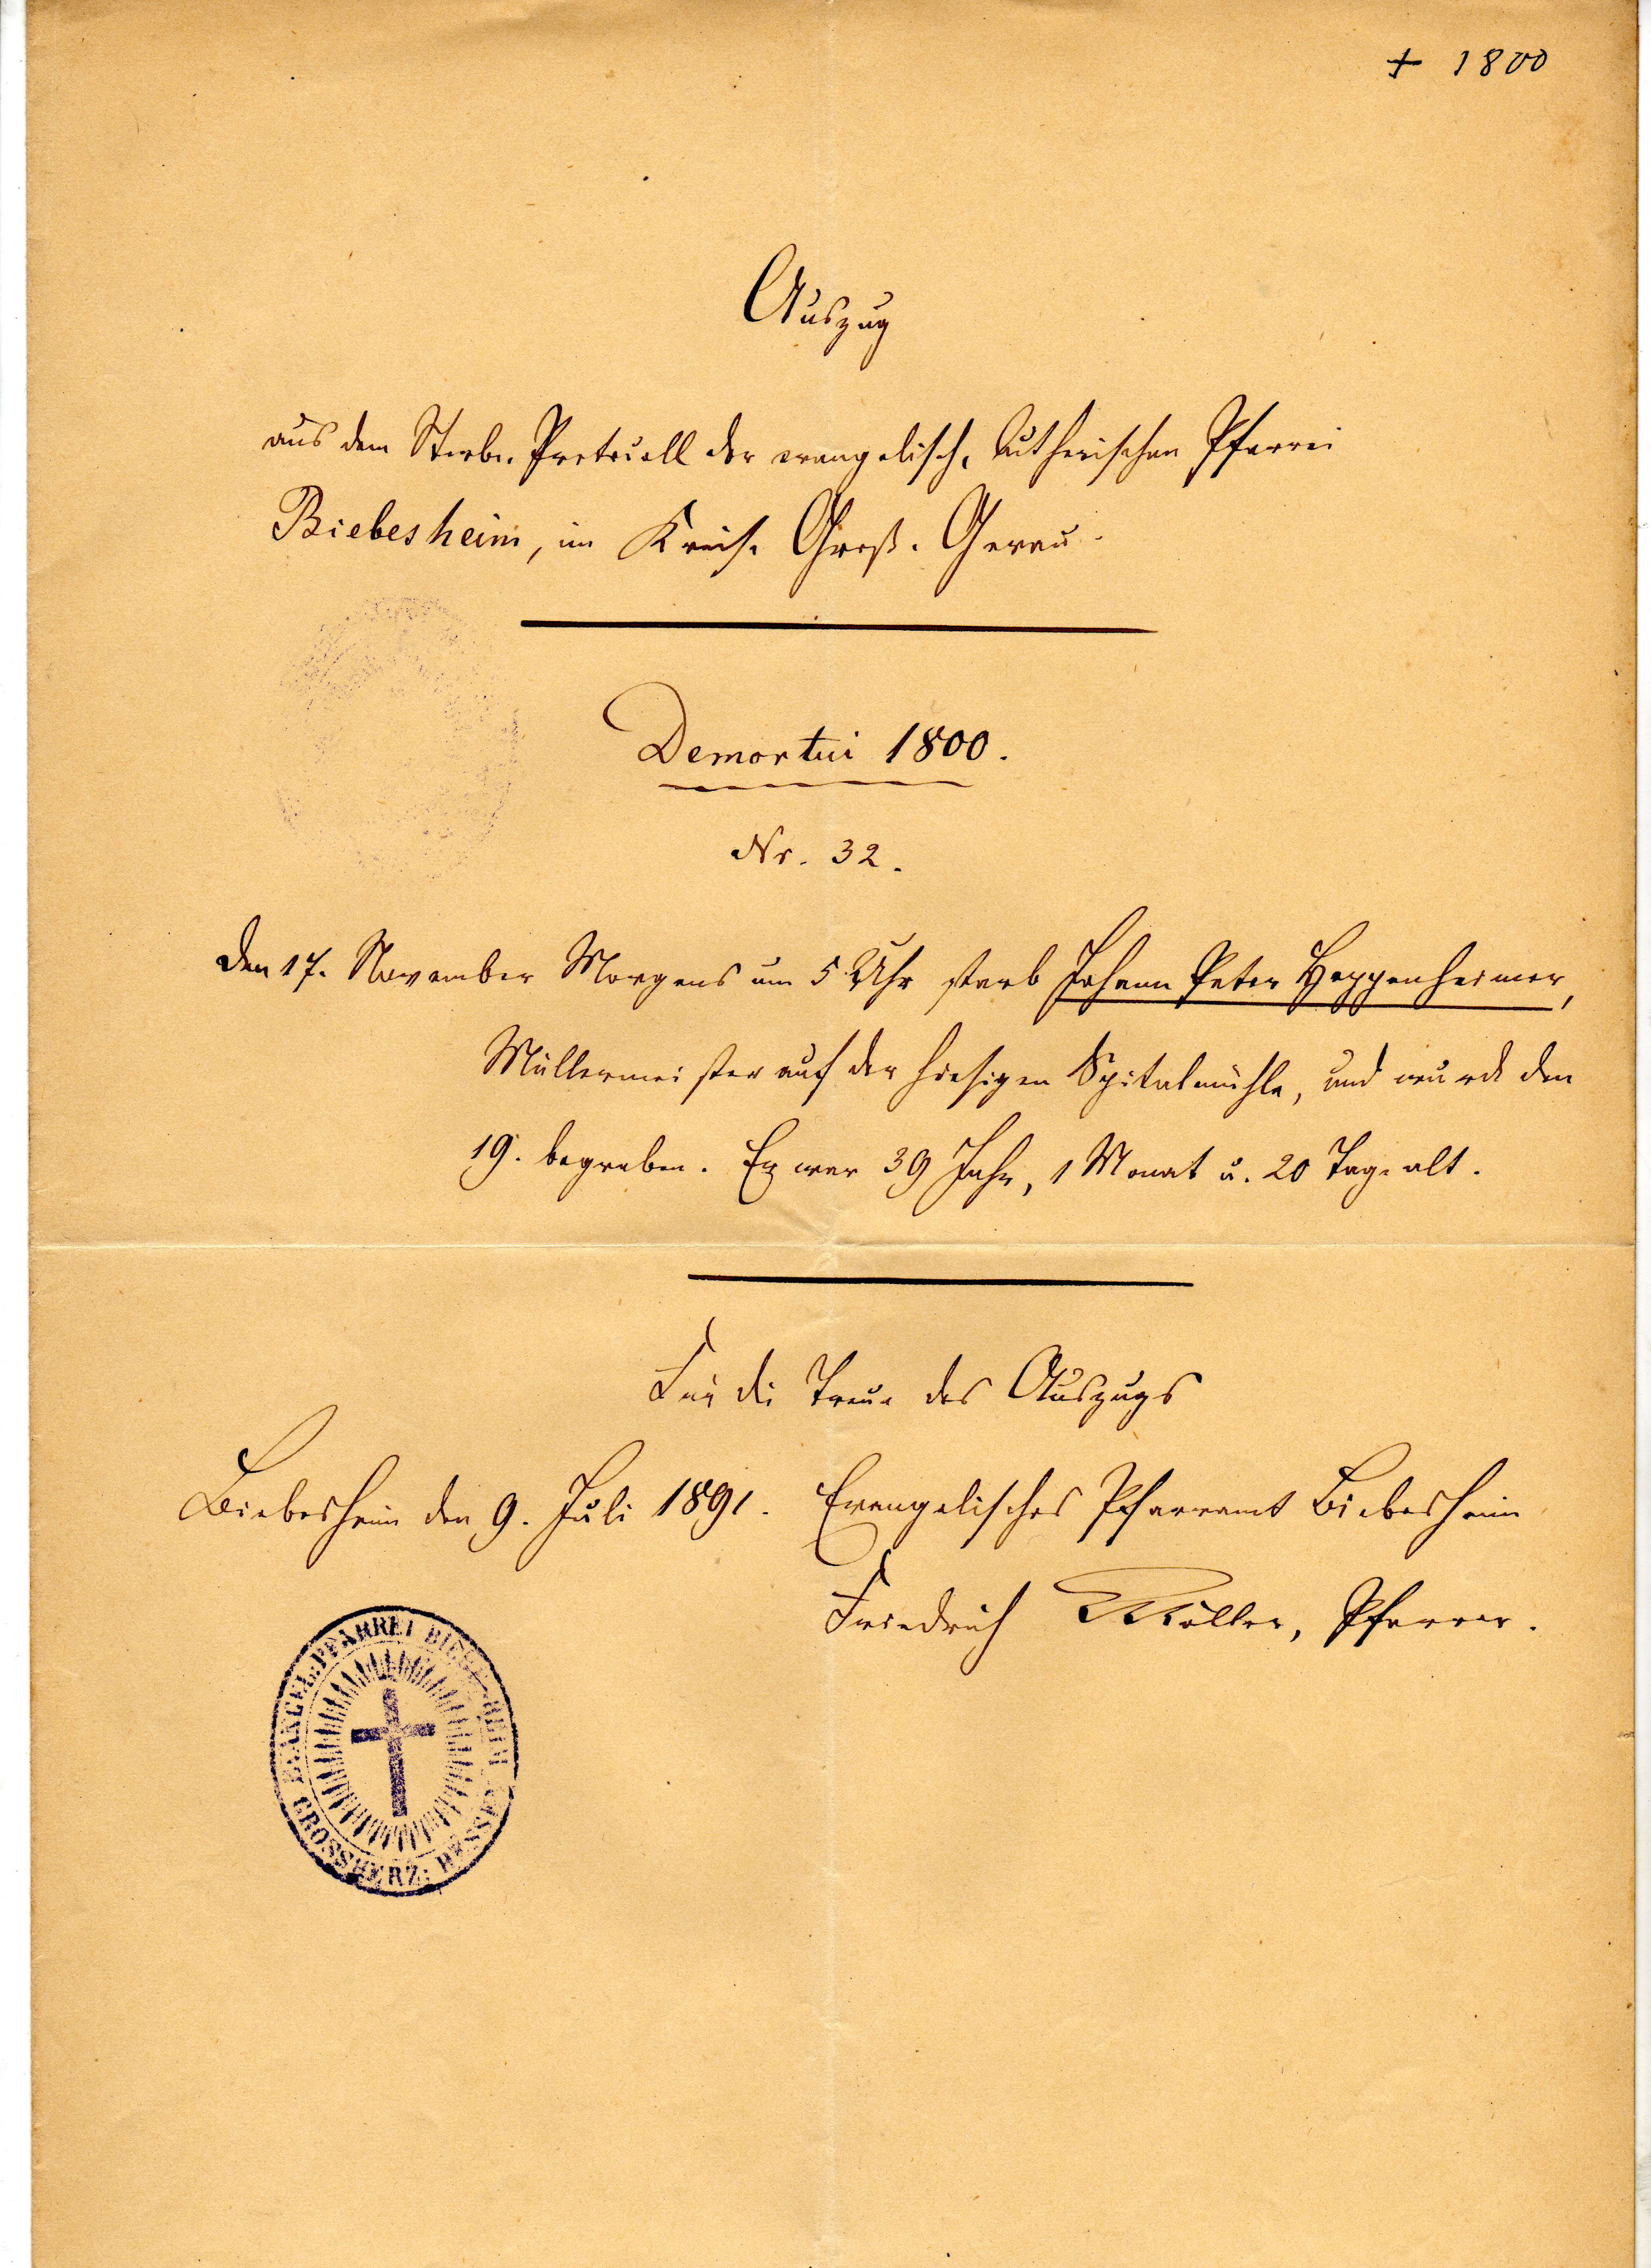 + 1800
Auszug
aus dem Sterbe-Protocoll der evangelisch-lutherischen Pfarrei
Biebesheim, im Kreise Groß-Gerau.
Demortui 1800.
Nr. 32.
Den 17. November Morgens um 5 Uhr starb Johann Peter Heppenheimer,
Müllermeister auf der hiesigen Spitalmühle, und wurde den
19. begraben. Er war 39 Jahr, 1 Monat u. 20 Tage alt.
Für die Treue des Auszugs
Biebesheim den 9. Juli 1891. Evangelisches Pfarramt Biebesheim
Friedrich Möller, Pfarrer.
EVANGEL: PFARREI BIEBESHEIM
GROSSHERZ: HESSEN